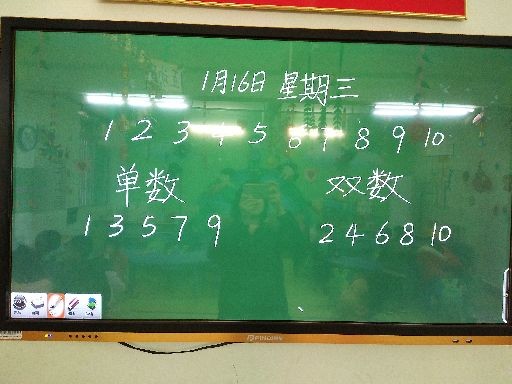 1月16日 星期三
1 2 3 4 5 6 7 8 9 10
单数 双数
1 3 5 7 9 2 4 6 8 10